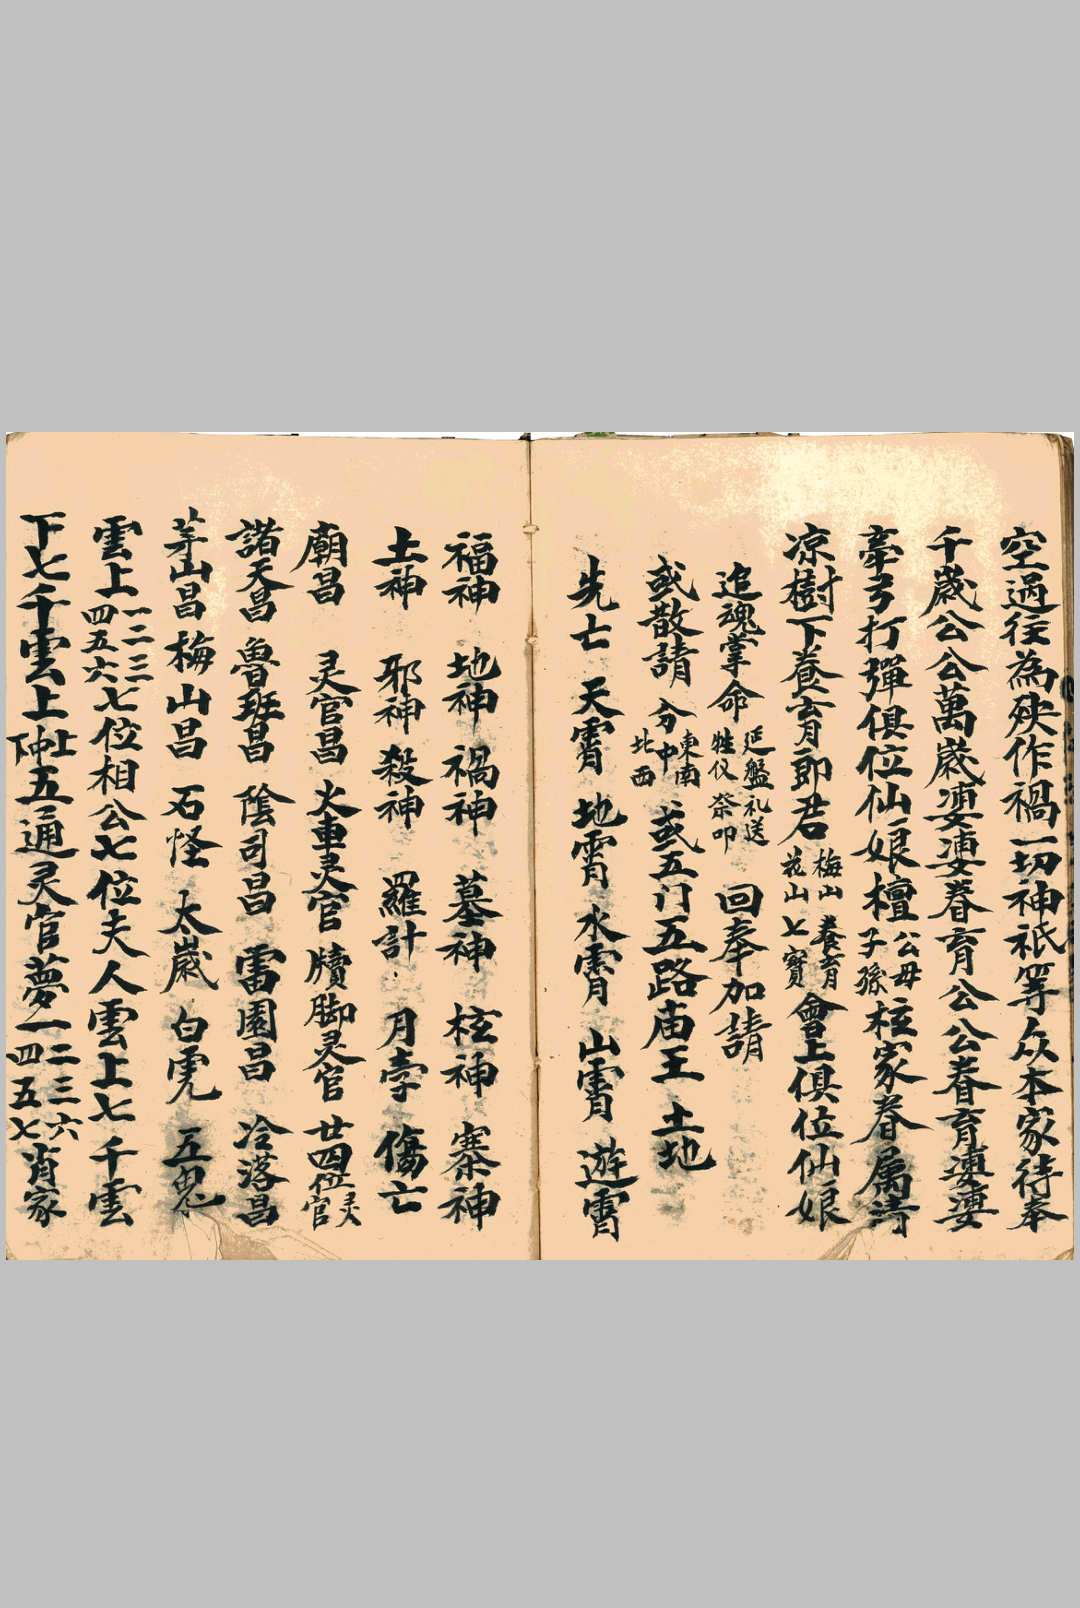 空過往為殃作禍一切神祇等众本家待奉
千歲公公萬歲婆婆眷育公公眷育婆婆
牽弓打彈俱位仙娘檀公母子孫柱家眷属請
凉樹下養育郎君梅山花山養育七寶會上俱位仙娘
追魂掌命延盤礼送牲仪祭叩回奉加請
或散請分東南中北西或五门五路庙王土地
先亡天霄地霄水霄山霄遊霄
福神地神禍神墓神柱神寨神
土神邪神殺神羅計月孛傷亡
廟昌灵官昌火車灵官牘脚灵官廿四位灵官
諸天昌魯班昌陰司昌雷園昌冷落昌
茅山昌梅山昌石怪太歲白虎五鬼
雲上一二三四五六七位相公七位夫人雲上七千雲
下七千雲上上中下五通灵官夢一二三四五六七肖家